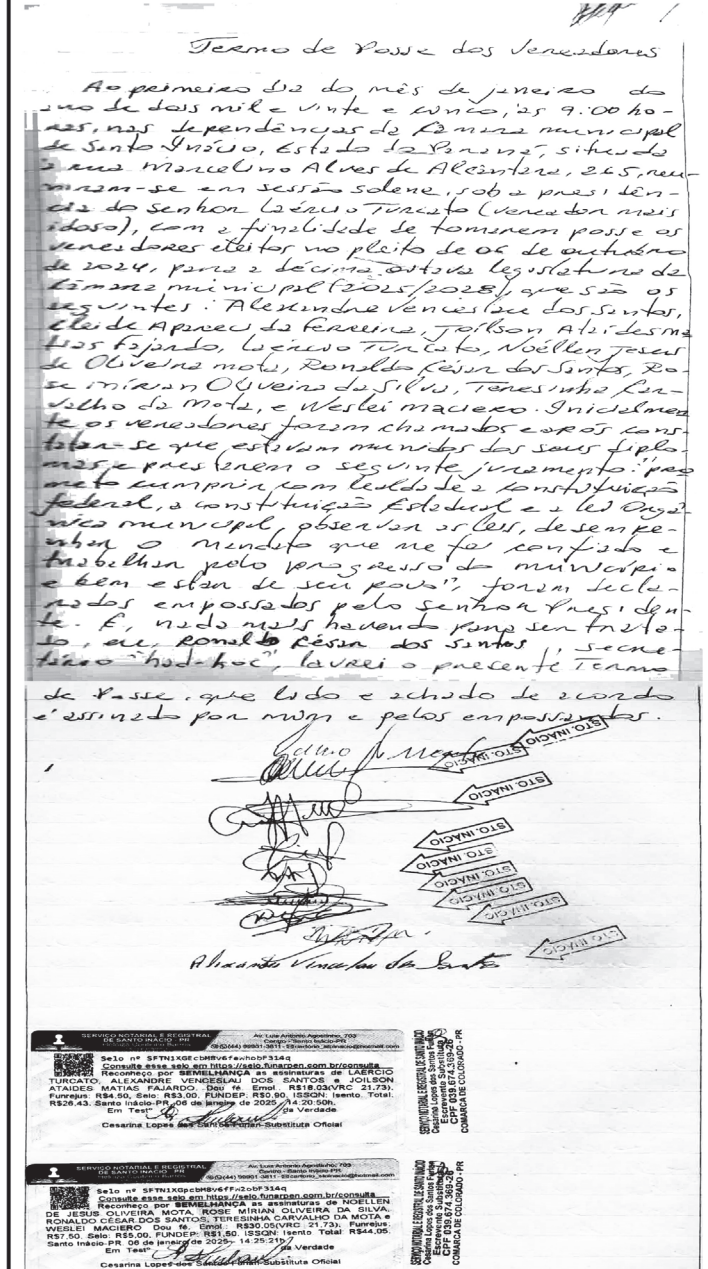 1
Termo de Posse dos Vereadores
Ao primeiro dia do mês de janeiro do
ano de dois mil e vinte e cinco, às 9:00 ho-
ras, nas dependências da Câmara municipal
de Santo Inácio, Estado do Paraná, situada
à rua Marcelino Alves de Alcântara, 265, reu-
niram-se em sessão solene, sob a presidên-
cia do senhor Laércio Turcato (vereador mais
idoso), com a finalidade de tomarem posse os
vereadores eleitos no pleito de 06 de outubro
de 2024, para a décima oitava legislatura da
Câmara municipal (2025/2028), que são os
seguintes: Alexandre Venceslau dos Santos,
Cleide Aparecida Ferreira, Joilson Ataides ma
tias Fajardo, Laércio Turcato, Noéllen Jesus
de Oliveira mota, Ronaldo César dos Santos, Ro-
se mírian Oliveira da Silva, Teresinha Car-
valho da Mota, e Weslei maciero. Inicialmen
te os vereadores foram chamados e após cons-
tatar-se que estavam munidos dos seus diplo-
mas e prestarem o seguinte juramento: "pro
meto cumprir com lealdade a constituição
federal, a constituição Estadual e a lei Orgâ-
nica municipal, observar as leis, desempe-
nhar o mandato que me foi confiado e
trabalhar pelo progresso do município
e bem estar de seu povo", foram decla-
rados empossados pelo senhor Presiden-
te. E, nada mais havendo para ser trata-
do, eu, Ronaldo César dos Santos, secre-
tário "had-hoc", lavrei o presente Termo
de Posse, que lido e achado de acordo
é assinado por mim e pelos empossandos.
STO. INÁCIO
STO. INÁCIO
STO. INÁCIO
STO. INÁCIO
STO. INÁCIO
STO. INÁCIO
STO. INÁCIO
STO. INÁCIO
STO. INÁCIO
Alexandre Venceslau dos Santos
SERVIÇO NOTARIAL E REGISTRAL
DE SANTO INÁCIO - PR
Av. Luiz Antonio Agostinho, 703
Centro - Santo Inácio-PR
Selo nº SFTN1XGEcbM8v6fewhobF314q
Consulte esse selo em https://selo.funarpen.com.br/consulta
Reconheço por SEMELHANÇA as assinaturas de LAERCIO
TURCATO, ALEXANDRE VENCESLAU DOS SANTOS e JOILSON
ATAIDES MATIAS FAJARDO. Dou fé. Emol. R$18,03(VRC 21,73).
Funrejus: R$4,50, Selo: R$3,00, FUNDEP: R$0,90, ISSQN: Isento. Total:
R$26,43. Santo Inácio-PR, 06 de janeiro de 2025, 14:20:50h.
Em Testº da Verdade
Cesarina Lopes dos Santos Furlan-Substituta Oficial
SERVIÇO NOTARIAL E REGISTRAL DE SANTO INÁCIO
Cesarina Lopes dos Santos Furlan
Escrevente Substituta
CPF 039.674.369-26
COMARCA DE COLORADO - PR
SERVIÇO NOTARIAL E REGISTRAL
DE SANTO INÁCIO - PR
Av. Luiz Antonio Agostinho, 703
Centro - Santo Inácio-PR
Selo nº SFTN1XGpcbM8v6fFw2obF314q
Consulte esse selo em https://selo.funarpen.com.br/consulta
Reconheço por SEMELHANÇA as assinaturas de NOELLEN
DE JESUS OLIVEIRA MOTA, ROSE MÍRIAN OLIVEIRA DA SILVA,
RONALDO CÉSAR DOS SANTOS, TERESINHA CARVALHO DA MOTA e
WESLEI MACIERO Dou fé. Emol.: R$30,05(VRC 21,73). Funrejus:
R$7,50, Selo: R$5,00, FUNDEP: R$1,50, ISSQN: Isento Total: R$44,05.
Santo Inácio-PR. 06 de janeiro de 2025- 14:25:21h
Em Testº da Verdade
Cesarina Lopes dos Santos Furlan-Substituta Oficial
SERVIÇO NOTARIAL E REGISTRAL DE SANTO INÁCIO
Cesarina Lopes dos Santos Furlan
Escrevente Substituta
CPF 039.674.369-26
COMARCA DE COLORADO - PR